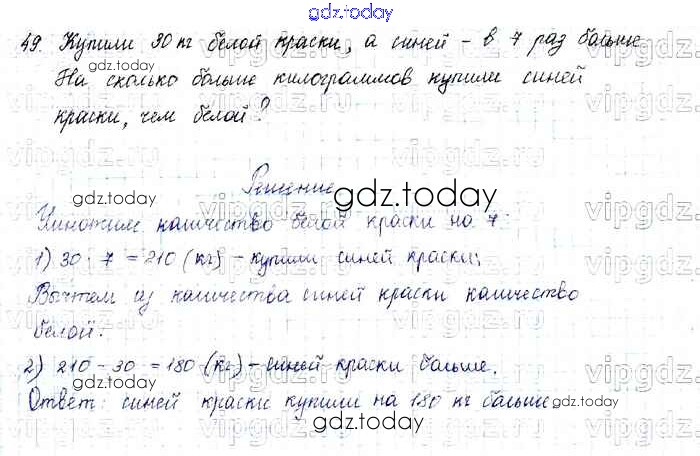 gdz.today
49. Купили 30 кг белой краски, а синей - в 7 раз больше
На сколько больше килограммов купили синей
краски, чем белой?
gdz.today
Решение
gdz.today
Умножим количество белой краски на 7:
1) 30 · 7 = 210 (кг) - купили синей краски;
Вычтем из количества синей краски количество
белой:
2) 210 - 30 = 180 (кг) - синей краски больше.
Ответ: синей краски купили на 180 кг больше
gdz.today
gdz.today
gdz.today